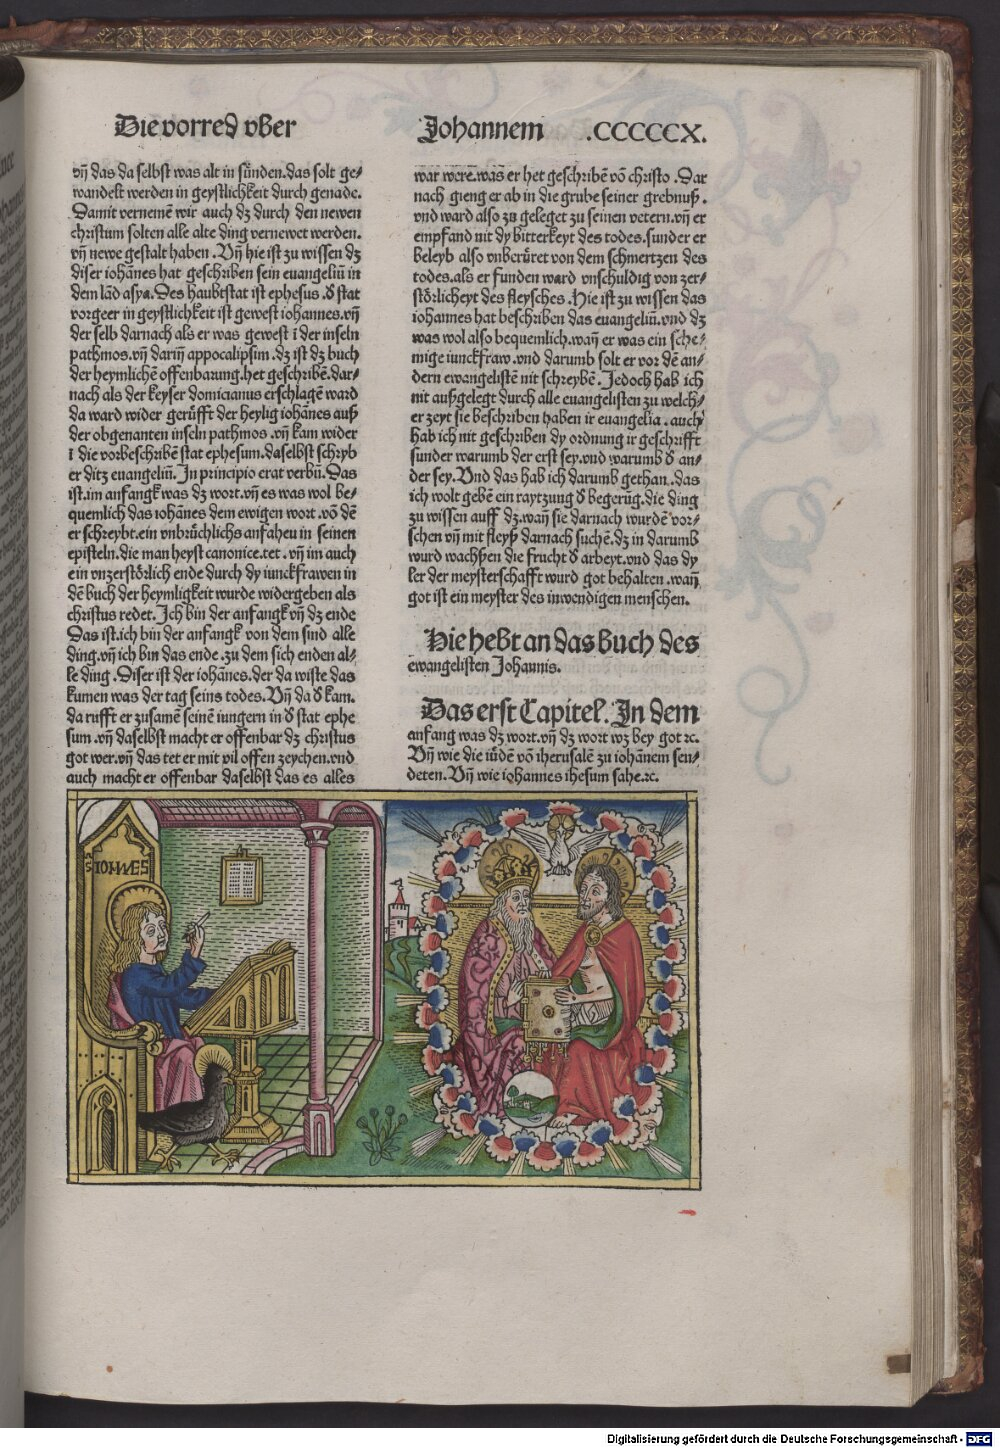 Die vorred vber
vñ das da selbst was alt in sünden.das solt ge⸗
wandelt werden in geystlichkeit durch genade.
Damit vernemē wir auch dz durch den newen
christum solten alle alte ding vernewet werden.
vñ newe gestalt haben. Vñ hie ist zu wissen dz
diser iohānes hat geschriben sein euangeliū in
dem lād asya. Des haubtstat ist ephesus. d̕ stat
vorgeer in geystlichkeit ist gewest iohannes. vñ
der selb darnach als er was gewest ī der inseln
pathmos.vñ dariñ appocalipsim.dz ist dz buch
der heymlichē offenbarung.het geschribē.dar⸗
nach als der keyser domicianus erschlagē ward
da ward wider gerüfft der heylig iohānes auß
der obgenanten inseln pathmos.vñ kam wider
ī die vorbeschribē stat ephesum.daselbst schryb
er ditz euangeliū. In principio erat verbū. Das
ist.im anfangk was dz wort. vñ es was wol be⸗
quemlich das iohānes dem ewigen wort.vō dē
er schreybt.ein vnbrüchlichs anfaheu in seinen
episteln.die man heyst canonice.tet. vñ im auch
ein vnzerstörlich ende durch dy iunckfrawen in
dē buch der heymligkeit wurde widergeben als
christus redet. Ich bin der anfangk vñ dz ende
Das ist.ich bin der anfangk von dem sind alle
ding.vñ ich bin das ende.zu dem sich enden al⸗
le ding. Diser ist der iohānes.der da wiste das
kumen was der tag seins todes. Vñ da d̕ kam.
da rufft er zusamē seinē iungern in d̕ stat ephe
sum.vñ daselbst macht er offenbar dz christus
got wer.vñ das tet er mit vil offen zeychen.vnd
auch macht er offenbar daselbst das es alles
Johannem .CCCCCX.
war were.was er het geschribē vō christo. Dar
nach gieng er ab in die grube seiner grebnuß.
vnd ward also zu geleget zu seinen vetern.vñ er
empfand nit dy bitterkeyt des todes.sunder er
beleyb also vnberüret von dem schmertzen des
todes.als er funden ward vnschuldig von zer⸗
störlicheyt des fleysches. Hie ist zu wissen das
iohannes hat beschriben das euangeliū.vnd dz
was wol also bequemlich.wañ er was ein sche⸗
mige iunckfraw.vnd darumb solt er vor dē an⸗
dern ewangelistē nit schreybē. Jedoch hab ich
nit außgelegt durch alle euangelisten zu welch⸗
er zeyt sie beschriben haben ir euangelia. auch
hab ich nit geschriben dy ordnung ir geschrifft
sunder warumb der erst sey.vnd warumb d̕ an⸗
der sey. Vnd das hab ich darumb gethan. das
ich wolt gebē ein raytzung d̕ begerūg.die ding
zu wissen auff dz.wañ sie darnach wurdē vor⸗
schen vñ mit fleyß darnach suchē.dz in darumb
wurd wachssen die frucht d̕ arbeyt.vnd das dy
ler der meysterschafft wurd got behalten.wañ
got ist ein meyster des inwendigen menschen.
Hie hebt an das buch des
ewangelisten Johannis.
Das erst Capitel. In dem
anfang was dz wort.vñ dz wort wz bey got ꝛc.
Vñ wie die iūdē vō iherusalē zu iohānem sen⸗
deten. Vñ wie iohannes ihesum sahe.ꝛc.
S IOHANES
Digitalisierung gefördert durch die Deutsche Forschungsgemeinschaft - DFG